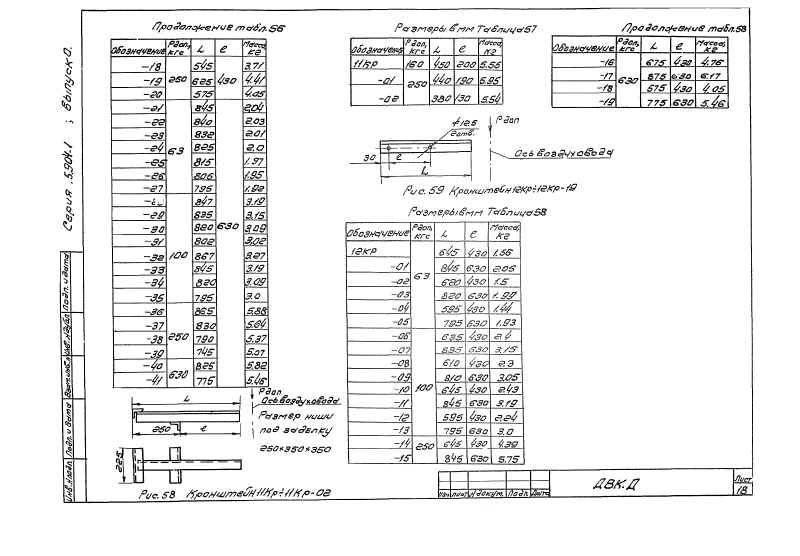 Серия 5.904-1 ; выпуск 0.
Продолжение табл. 56
Обозначение Рдоп, кгс L ℓ Масса, кг
-18 250 545 430 3.71
-19 625 4.41
-20 575 4.05
-21 63 845 630 2.04
-22 840 2.03
-23 832 2.01
-24 825 2.0
-25 815 1.97
-26 806 1.95
-27 795 1.92
100 847 3.19
-29 835 3.15
-30 820 3.09
-31 802 3.02
-32 867 3.27
-33 845 3.19
-34 820 3.09
-35 795 3.0
-36 250 865 5.88
-37 830 5.64
-38 790 5.37
-39 745 5.07
-40 630 825 5.82
-41 775 5.46
L
Рдоп
Ось воздуховода
250 ℓ
Размер ниши
под заделку
250×350×350
225
Рис. 58 Кронштейн 11Кр÷11Кр-02
Размеры в мм Таблица 57
Обозначение Рдоп, кгс L ℓ Масса, кг
11Кр 160 450 200 5.55
-01 250 440 190 5.95
-02 380 130 5.54
ф12.5
2 отв.
Рдоп
Ось воздуховода
30 ℓ
L
Рис. 59 Кронштейн 12Кр÷12Кр-19
Размеры в мм Таблица 58
Обозначение Рдоп, кгс L ℓ Масса, кг
12Кр 63 645 430 1.56
-01 845 630 2.05
-02 620 430 1.5
-03 820 630 1.99
-04 595 430 1.44
-05 795 630 1.93
-06 100 635 430 2.4
-07 835 630 3.15
-08 610 430 2.3
-09 810 630 3.05
-10 645 430 2.43
-11 845 630 3.19
-12 595 430 2.24
-13 795 630 3.0
-14 250 645 430 4.39
-15 845 630 5.75
Продолжение табл. 58
Обозначение Рдоп, кгс L ℓ Масса, кг
-16 630 675 430 4.76
-17 875 630 6.17
-18 575 430 4.05
-19 775 630 5.46
Инв.№подл. Подп. и дата Взам.инв.№ Инв.№дубл. Подп. и дата
Изм Лист № докум. Подп. Дата
ДВК.Д
Лист
18